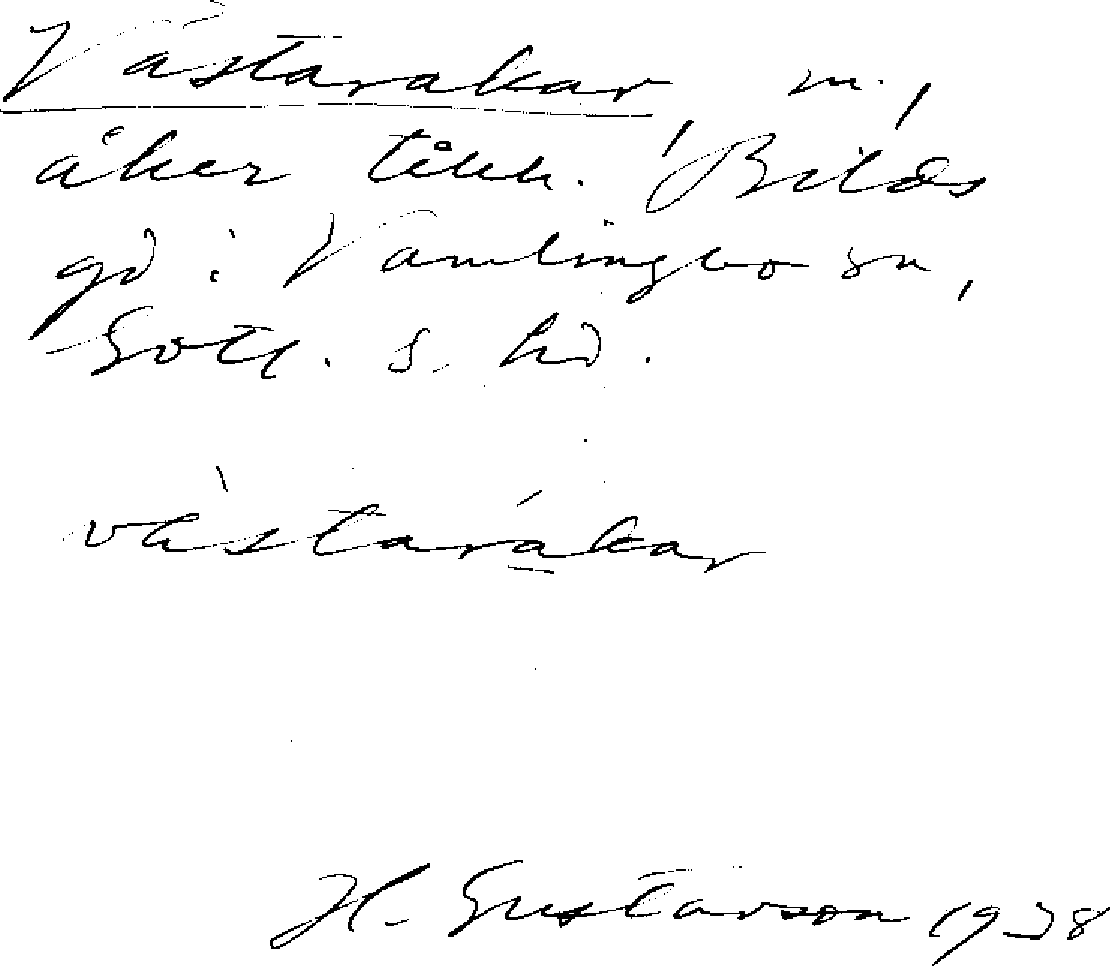 Västarakar m.,
åker tillh. Bilds
gd i Vamlingbo sn,
Gotl. s. hd.
västarákar
H. Gustavson 1938